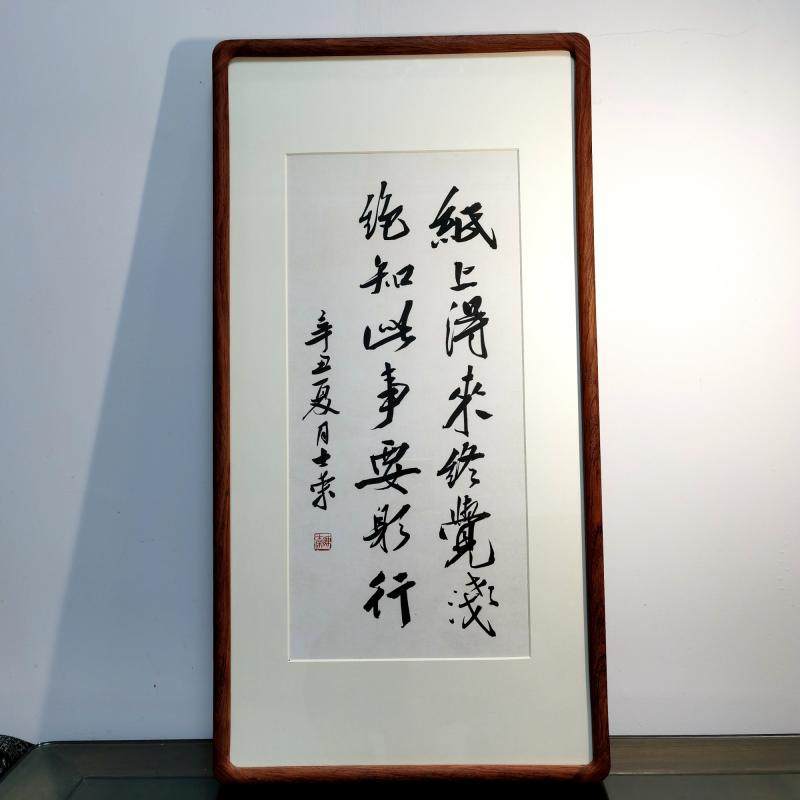 紙上得來終覺淺
絶知此事要躬行
辛丑夏月士荣